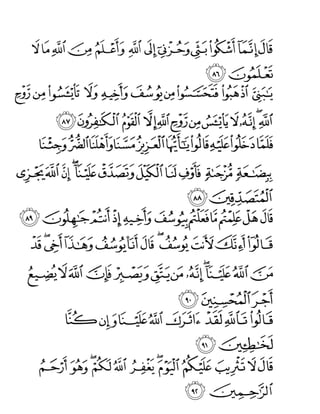 قَالَ إِنَّمَآ أَشْكُوا۟ بَثِّى وَحُزْنِىٓ إِلَى ٱللَّهِ وَأَعْلَمُ مِنَ ٱللَّهِ مَا لَا
تَعْلَمُونَ ٨٦
يَـٰبَنِىَّ ٱذْهَبُوا۟ فَتَحَسَّسُوا۟ مِن يُوسُفَ وَأَخِيهِ وَلَا تَا۟يْـَٔسُوا۟ مِن رَّوْحِ
ٱللَّهِ ۖ إِنَّهُۥ لَا يَا۟يْـَٔسُ مِن رَّوْحِ ٱللَّهِ إِلَّا ٱلْقَوْمُ ٱلْكَـٰفِرُونَ ٨٧
فَلَمَّا دَخَلُوا۟ عَلَيْهِ قَالُوا۟ يَـٰٓأَيُّهَا ٱلْعَزِيزُ مَسَّنَا وَأَهْلَنَا ٱلضُّرُّ وَجِئْنَا
بِبِضَـٰعَةٍ مُّزْجَىٰةٍ فَأَوْفِ لَنَا ٱلْكَيْلَ وَتَصَدَّقْ عَلَيْنَآ ۖ إِنَّ ٱللَّهَ يَجْزِى
ٱلْمُتَصَدِّقِينَ ٨٨
قَالَ هَلْ عَلِمْتُم مَّا فَعَلْتُم بِيُوسُفَ وَأَخِيهِ إِذْ أَنتُمْ جَـٰهِلُونَ ٨٩
قَالُوٓا۟ أَءِنَّكَ لَأَنتَ يُوسُفُ ۖ قَالَ أَنَا۠ يُوسُفُ وَهَـٰذَآ أَخِى ۖ قَدْ
مَنَّ ٱللَّهُ عَلَيْنَآ ۖ إِنَّهُۥ مَن يَتَّقِ وَيَصْبِرْ فَإِنَّ ٱللَّهَ لَا يُضِيعُ
أَجْرَ ٱلْمُحْسِنِينَ ٩٠
قَالُوا۟ تَٱللَّهِ لَقَدْ ءَاثَرَكَ ٱللَّهُ عَلَيْنَا وَإِن كُنَّا
لَخَـٰطِـِٔينَ ٩١
قَالَ لَا تَثْرِيبَ عَلَيْكُمُ ٱلْيَوْمَ ۖ يَغْفِرُ ٱللَّهُ لَكُمْ ۖ وَهُوَ أَرْحَمُ
ٱلرَّٰحِمِينَ ٩٢